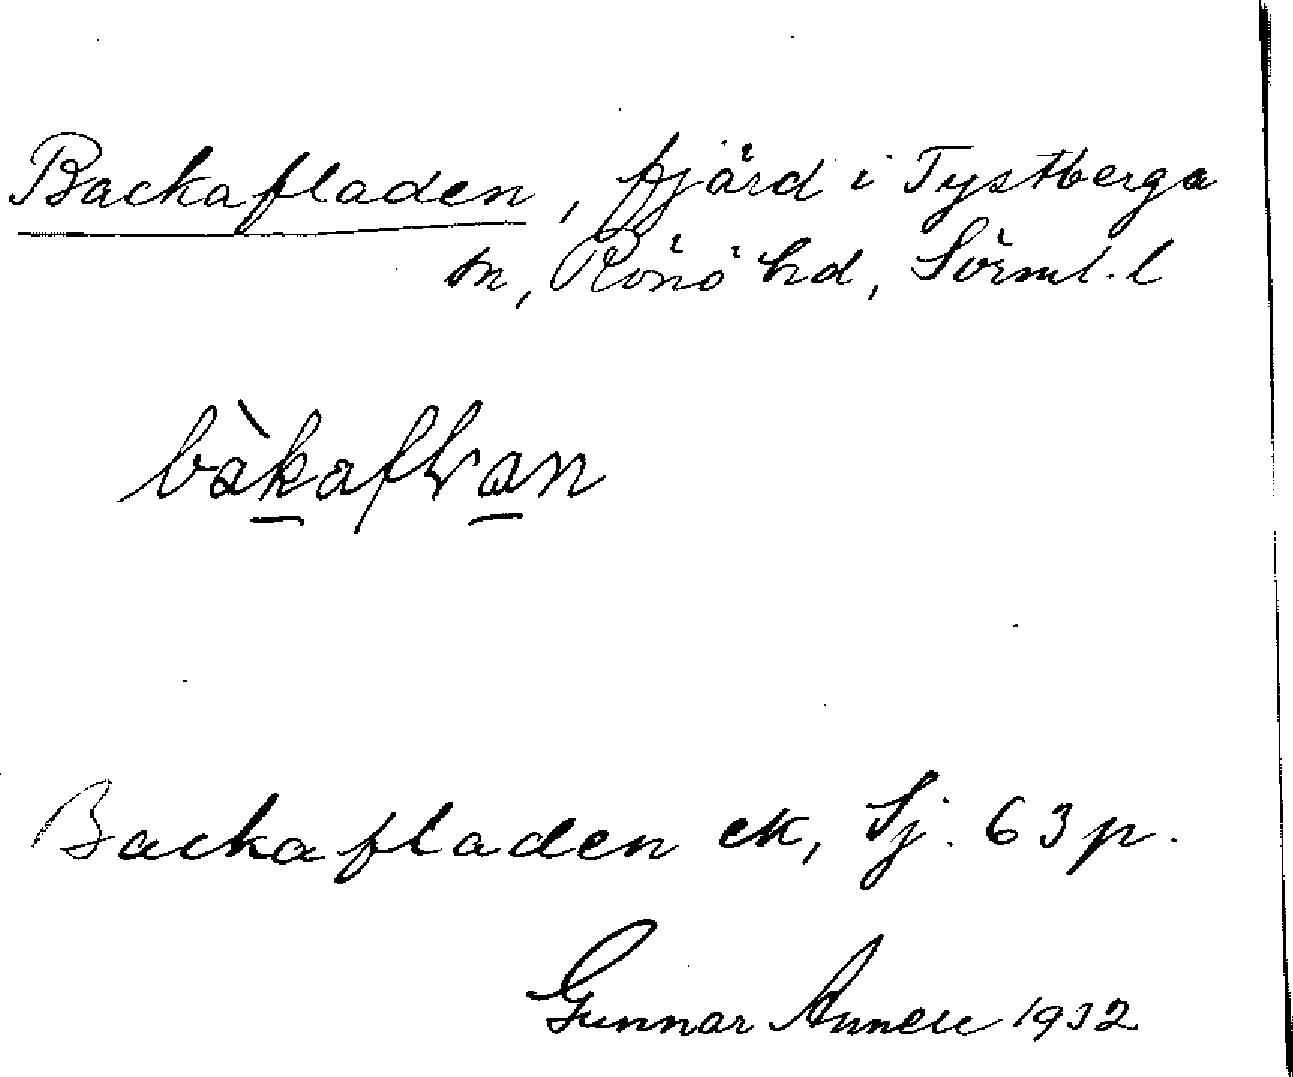 Backafladen, fjärd i Tystberga
sn, Rönö hd, Sörml. l
bàkaflan
Backafladen ek, Sj. 63 p.
Gunnar Annell 1932